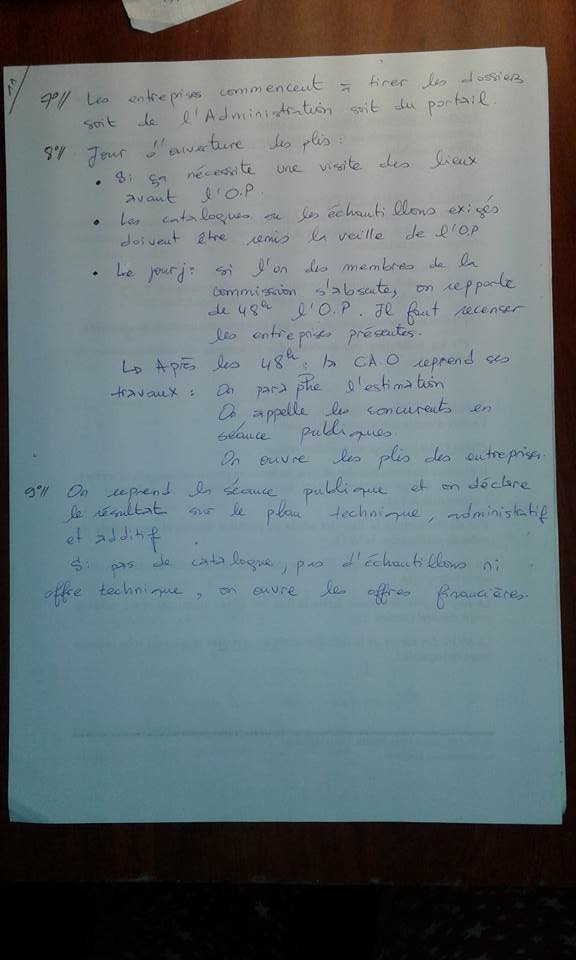 7°// Les entreprises commencent à tirer les dossiers
soit de l'Administration soit du portail.
8°// Jour d'ouverture des plis :
• Si ça nécessite une visite des lieux
avant l'O.P.
• Les catalogues ou les échantillons exigés
doivent être remis la veille de l'O.P
• Le jour j : si l'un des membres de la
commission s'absente, on repporte
de 48h l'O.P. Il faut recenser
les entreprises présentes.
↳ Après les 48h : la C.A.O reprend ses
travaux : On paraphe l'estimation
On appelle les concurents en
séance publiques.
On ouvre les plis des entreprises.
9°// On reprend la séance publique et on déclare
le résultat sur le plan technique, administratif
et additif.
Si pas de catalogue, pas d'échantillons ni
offre technique, on ouvre les offres financières.